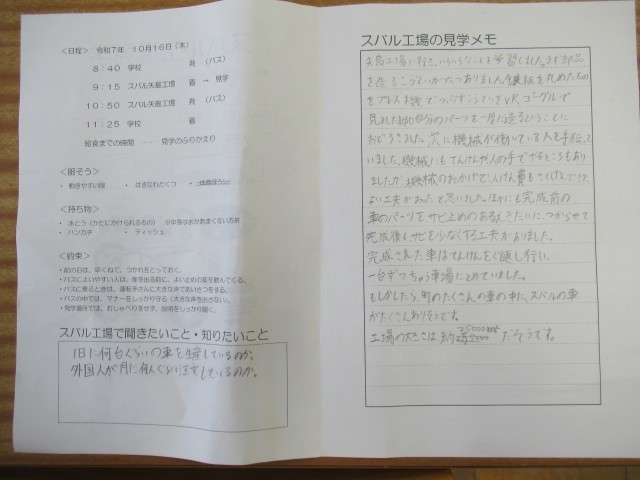 <日程> 令和7年 10月16日(木)
8:40 学校 発 (バス)
9:15 スバル矢島工場 着 → 見学
10:50 スバル矢島工場 発 (バス)
11:25 学校 着
給食までの時間 ── 見学のふりかえり
<服そう>
・動きやすい服 ・はきなれたくつ
<持ち物>
・水とう(かたにかけられるもの)
・ハンカチ ・ティッシュ
<約束>
・前の日は、早くねて、つかれをとっておく。
・バスによいやすい人は、家を出る前に、よい止めの薬を飲んでくる。
・バスに乗るときは、運転手さんに大きな声であいさつをする。
・バスの中では、マナーをしっかり守る(大きな声を出さない)。
・見学場所では、おしゃべりをせず、説明をしっかり聞く。
スバル工場で聞きたいこと・知りたいこと
1日に何台くらいの車を生産しているのか。
外国人が月に何人くらい注文しているのか。
スバル工場の見学メモ
矢島工場に行き、いろいろなことを学習しました。まず部品
を造るこうていがたつありました。鉄板を丸めたもの
をプレス機でつぶすこうていをVRゴーグルで
見ました。
おどろきました。次に機械が働いている人を手伝って
いました。機械にもてんけんや人の手でやるところもあり
ましたが、機械のおかげで人けん費もさくげんできて、
よい工夫があったと思いました。ほかにも完成前の
車のパーツをサビ止めのある えきたいに、つからせて
完成後もサビを少なくする工夫がありました。
完成された車はてんけんをくり返し行い、
一台ずつちゅう車場にとめていました。
もしかしたら、町のたくさんの車の中に、スバルの車
がたくさんありそうです。
工場の大きさは約 だそうです。